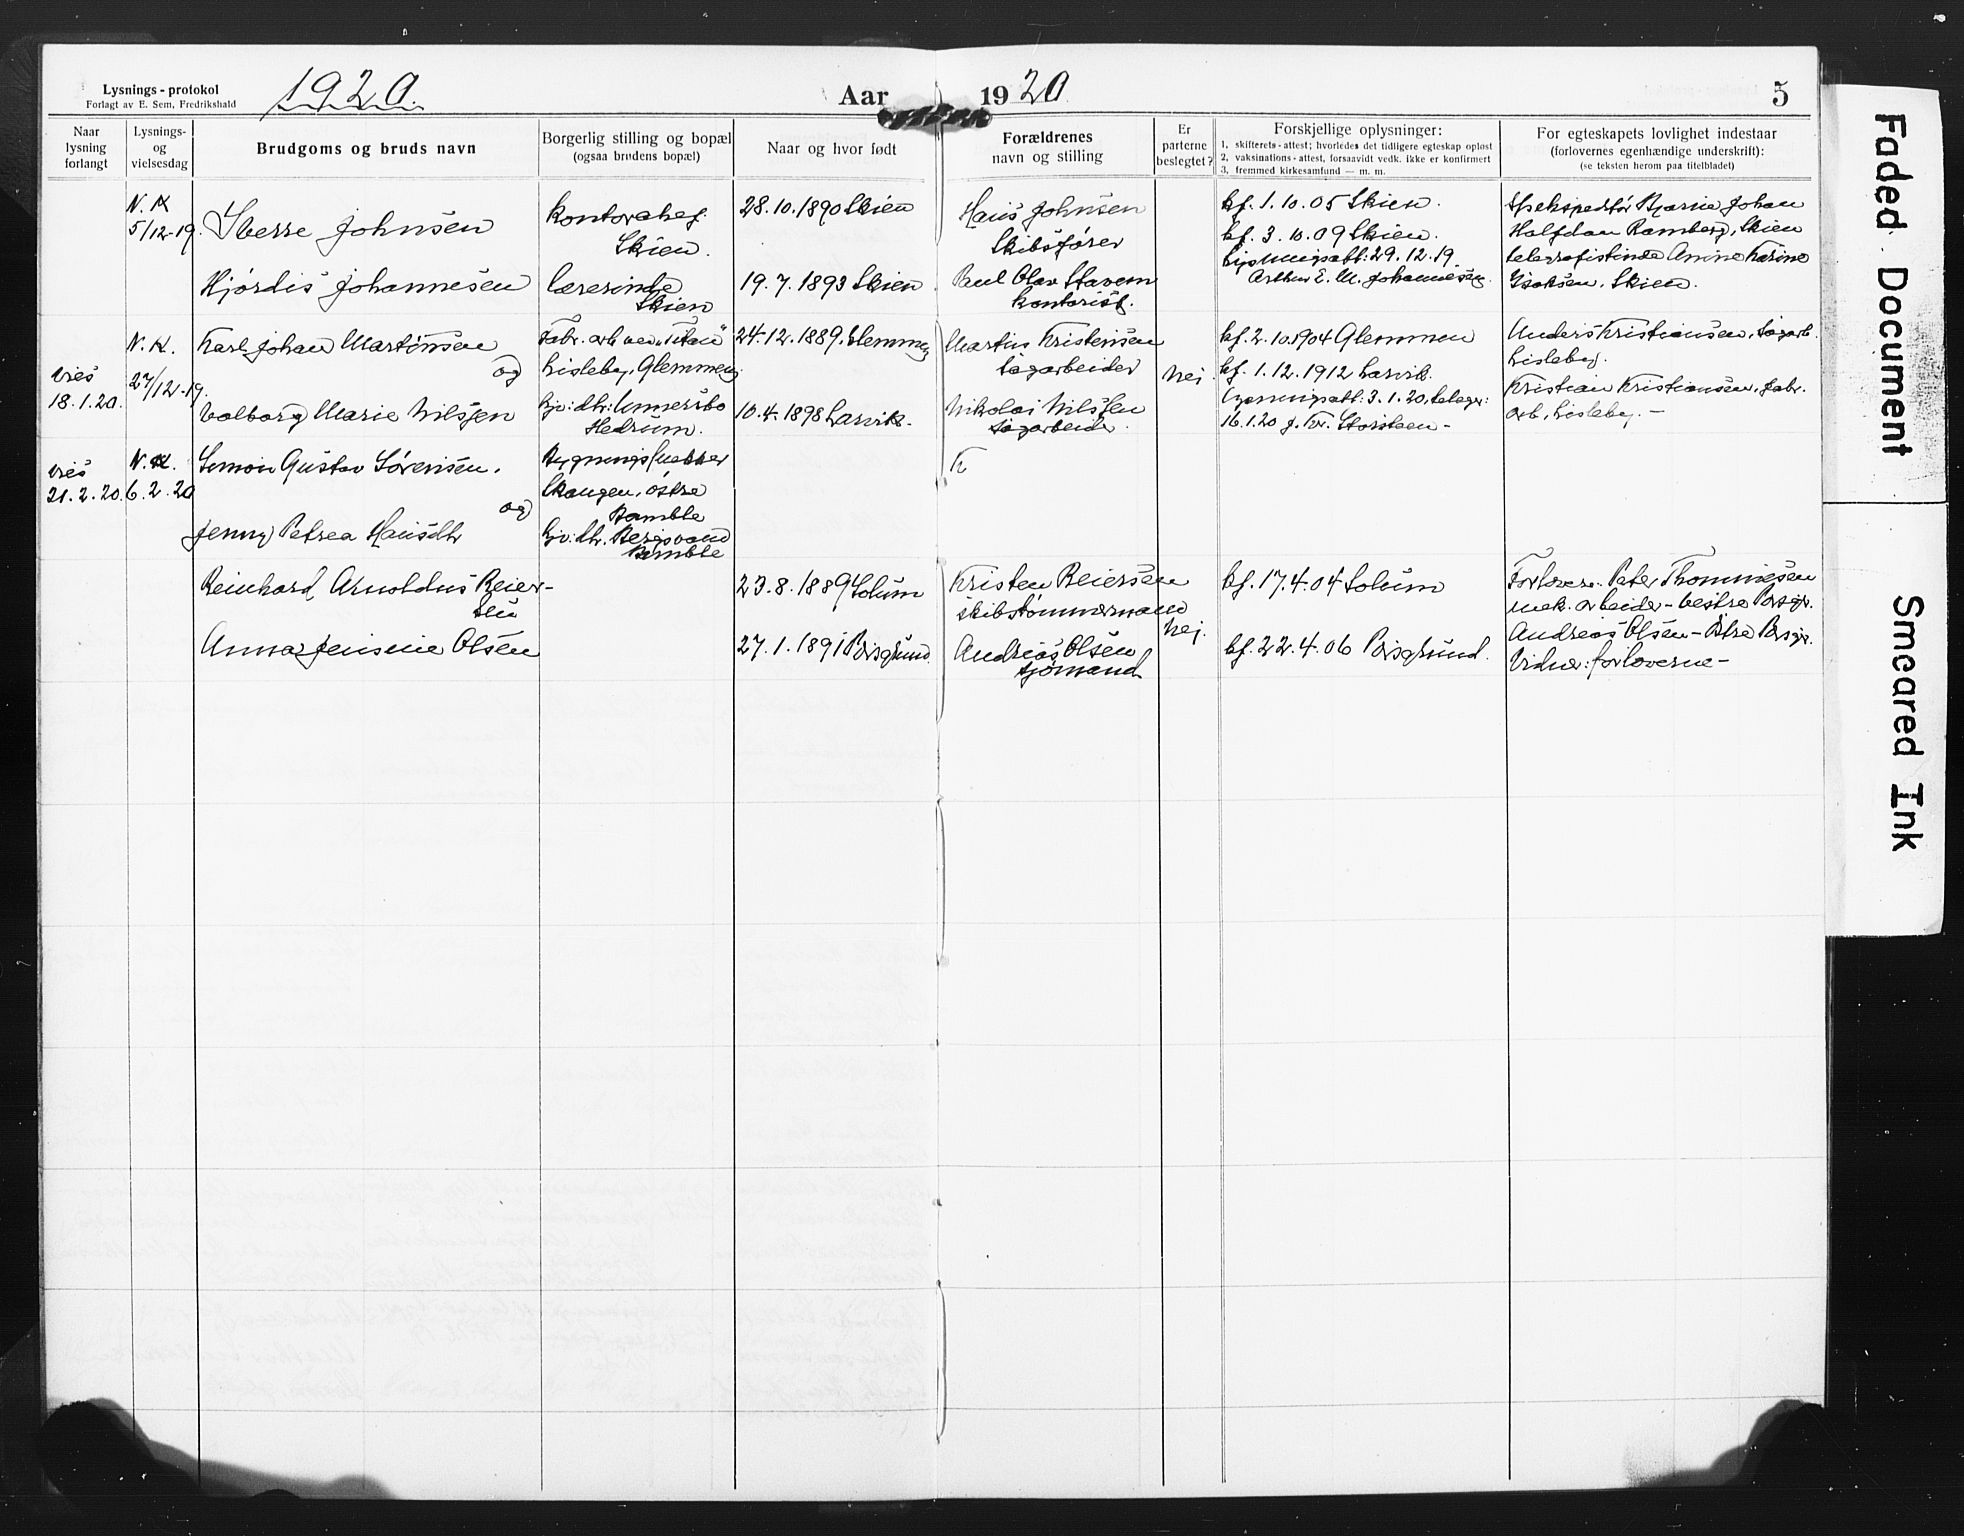 Lysnings-protokol
Forlagt av E. Sem, Fredrikshald
1920.
Aar 1920
5
Naar lysning forlangt
Lysnings- og vielsesdag
Brudgoms og bruds navn
Borgerlig stilling og bopæl
(ogsaa brudens bopæl)
Naar og hvor født
Forældrenes
navn og stilling
Er parterne beslegtet?
Forskjellige oplysninger:
1, skifterets-attest; hvorledes det tidligere egteskap opløst
2, vaksinations-attest, forsaavidt vedk. ikke er konfirmert
3, fremmed kirkesamfund — m. m.
For egteskapets lovlighet indestaar
(forlovernes egenhændige underskrift):
(se teksten herom paa titelbladet)
N. K
5/12-19.
Sverre Johnsen
Kontorchef.
Skien.
28.10.1890 Skien
Hans Johnsen
Skibsfører
kf. 1.10.05 Skien.
kf. 3.10.09 Skien.
Lysningsatt: 29.12.19.
Arthur E. M. Johannesen.
Ekspeditør Bjarne Johan
Halfdan Ramberg, Skien
telegrafistinde Anine Karine
Isaksen. Skien.
Hjørdis Johannesen
lærerinde
Skien
19.7.1893 Skien
Paul Olav Stavem
kontorist.
vies
18.1.20.
N. K.
27/12-19.
Karl Johan Martinsen
og
Fabr. arb ved "Titan"
Lisleby, Glemmen
24-12.1889. Glemmen
Martin Kristensen
Sagarbeider
Nei.
kf. 2.10.1904 Glemmen
kf. 1.12.1912 Larvik.
Lysningsatt. 3.1.20, telegr:
16.1.20 J. Kr. Storsteen -
Anders Kristiansen, Sagarb.
Lisleby.
Kristian Kristiansen, fabr.
arb, Lisleby. -
Valborg Marie Nilsen
Gjv: dtr: Unnersbo
Hedrum.
10.4.1898 Larvik.
Nikolai Nilsen
Sagarbeider.
vies
21.2.20.
N. K.
6.2.20
Simon Gustav Sørensen.
og
Bygningssnekker
Skaugen, østre
Bamble
K
Jenny Petrea Hansdtr
Gjv: dtr. Bergsvand
Bamble
Reinhard Arnoldus Reier-
sen
23.8.1889 Solum
Kristen Reiersen
skibstømmermand
Nej.
kf. 17.4.04 Solum
Forlovere: Peter Thommesen
mek. arbeider - Vestre Porsgr.
Anna Jensine Olsen
27.1.1891 Porsgrund.
Andreas Olsen
sjømand
kf. 22.4.06 Porsgrund.
Andreas Olsen - Østre Porsgr.
Vidner: forloverne -
Faded Document
Smeared Ink